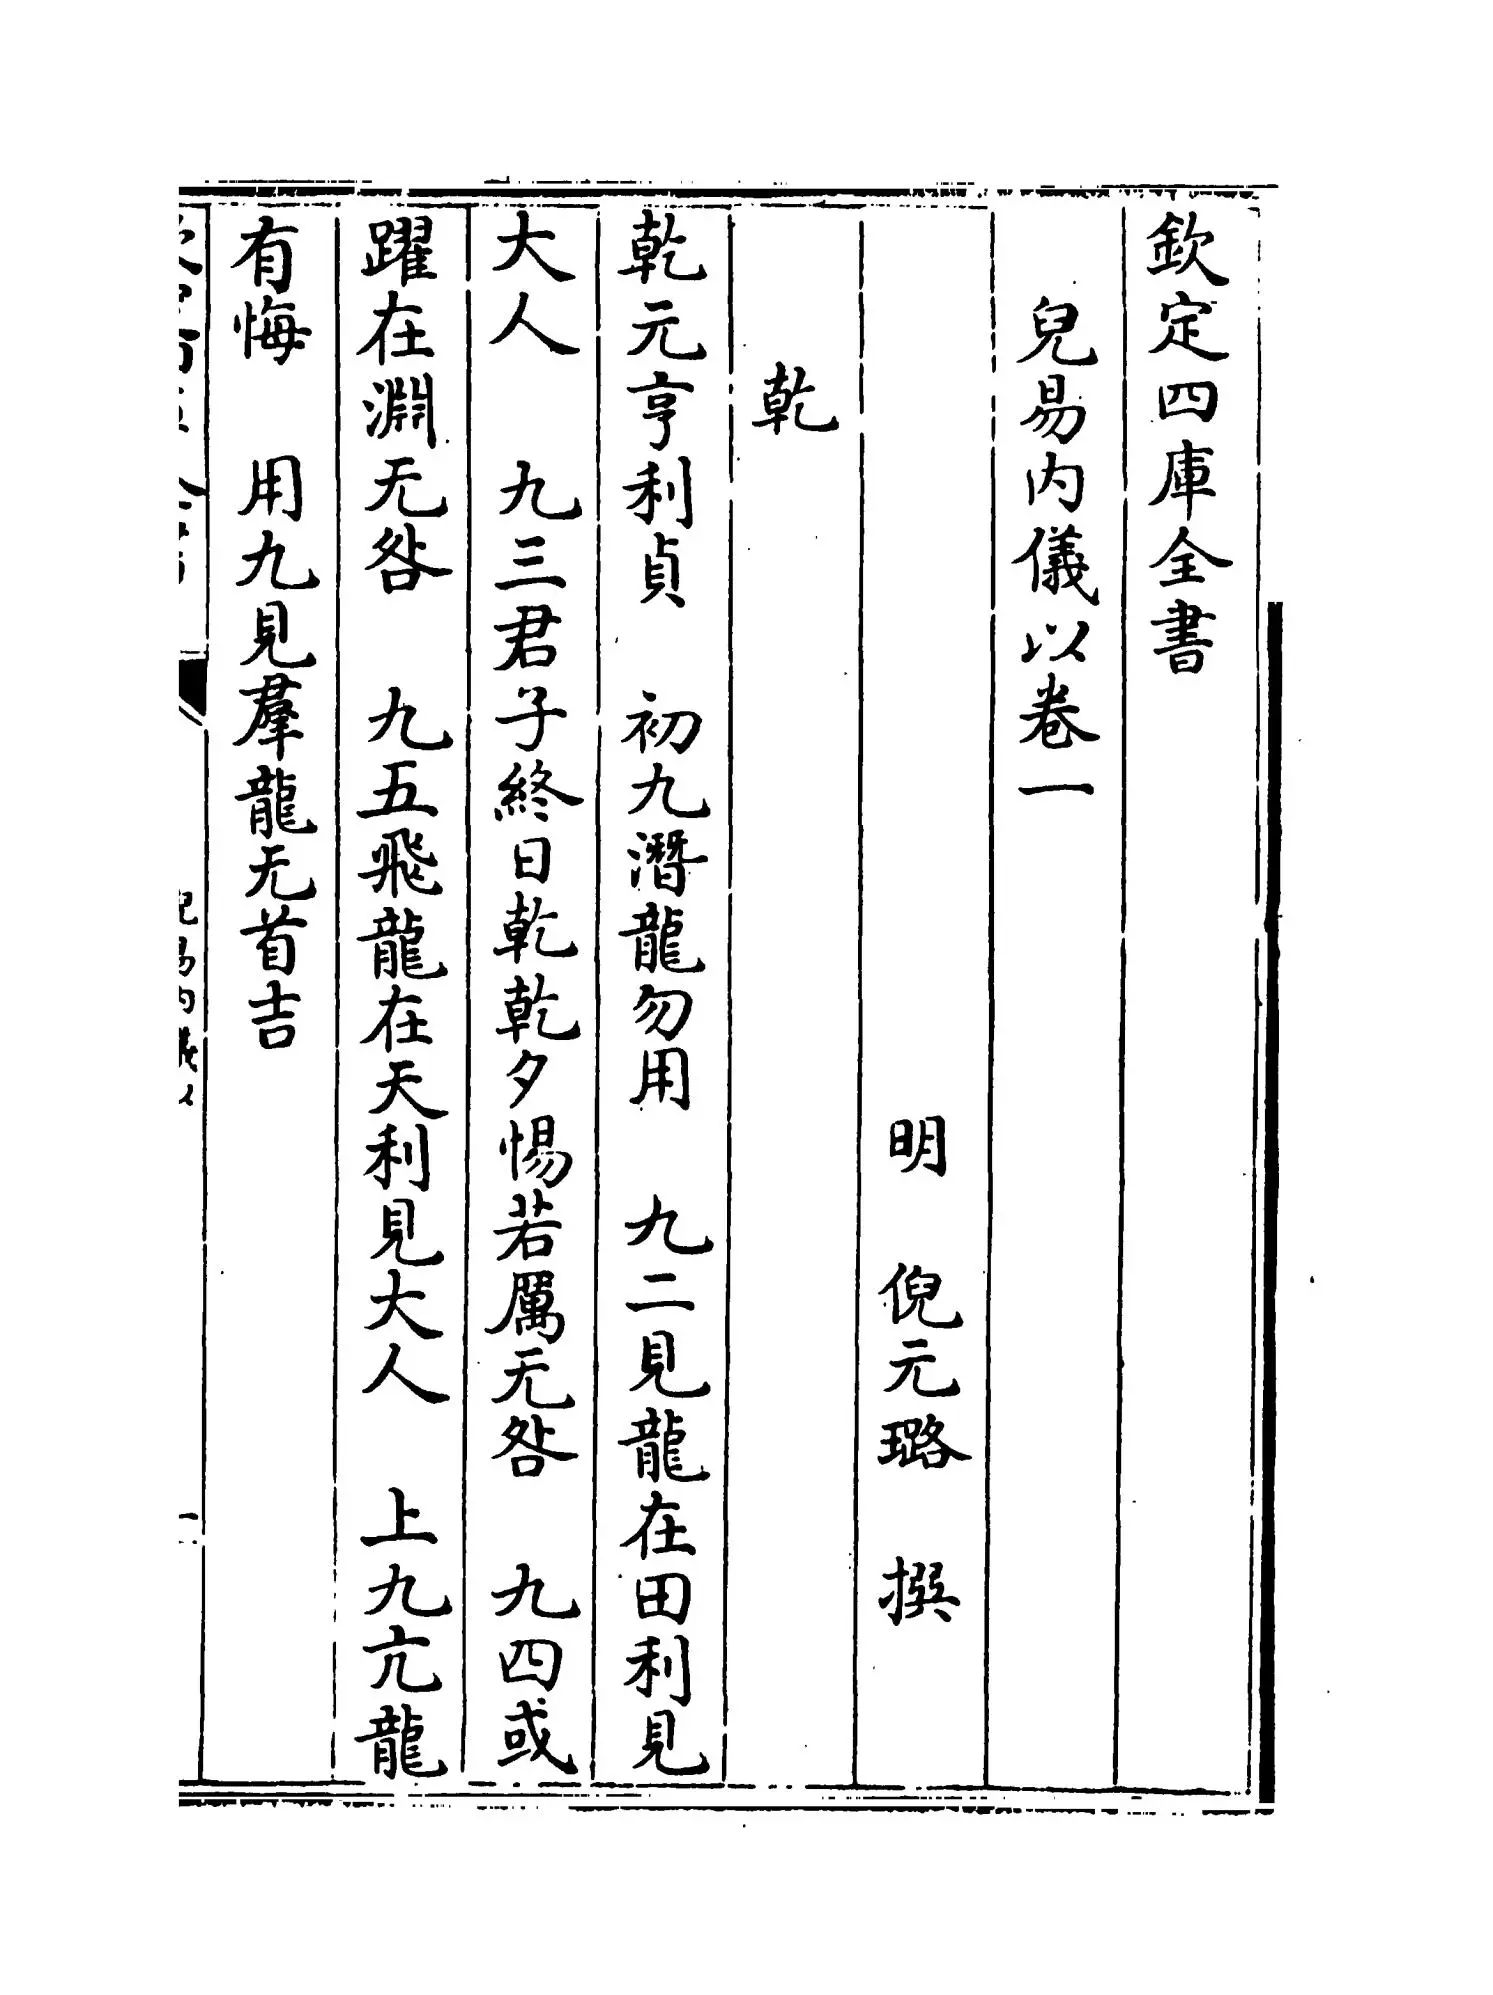 欽定四庫全書
兒易内儀以卷一
明 倪元璐 撰
乾
乾元亨利貞 初九潛龍勿用 九二見龍在田利見
大人 九三君子終日乾乾夕惕若厲无咎 九四或
躍在淵无咎 九五飛龍在天利見大人 上九亢龍
有悔 用九見羣龍无首吉